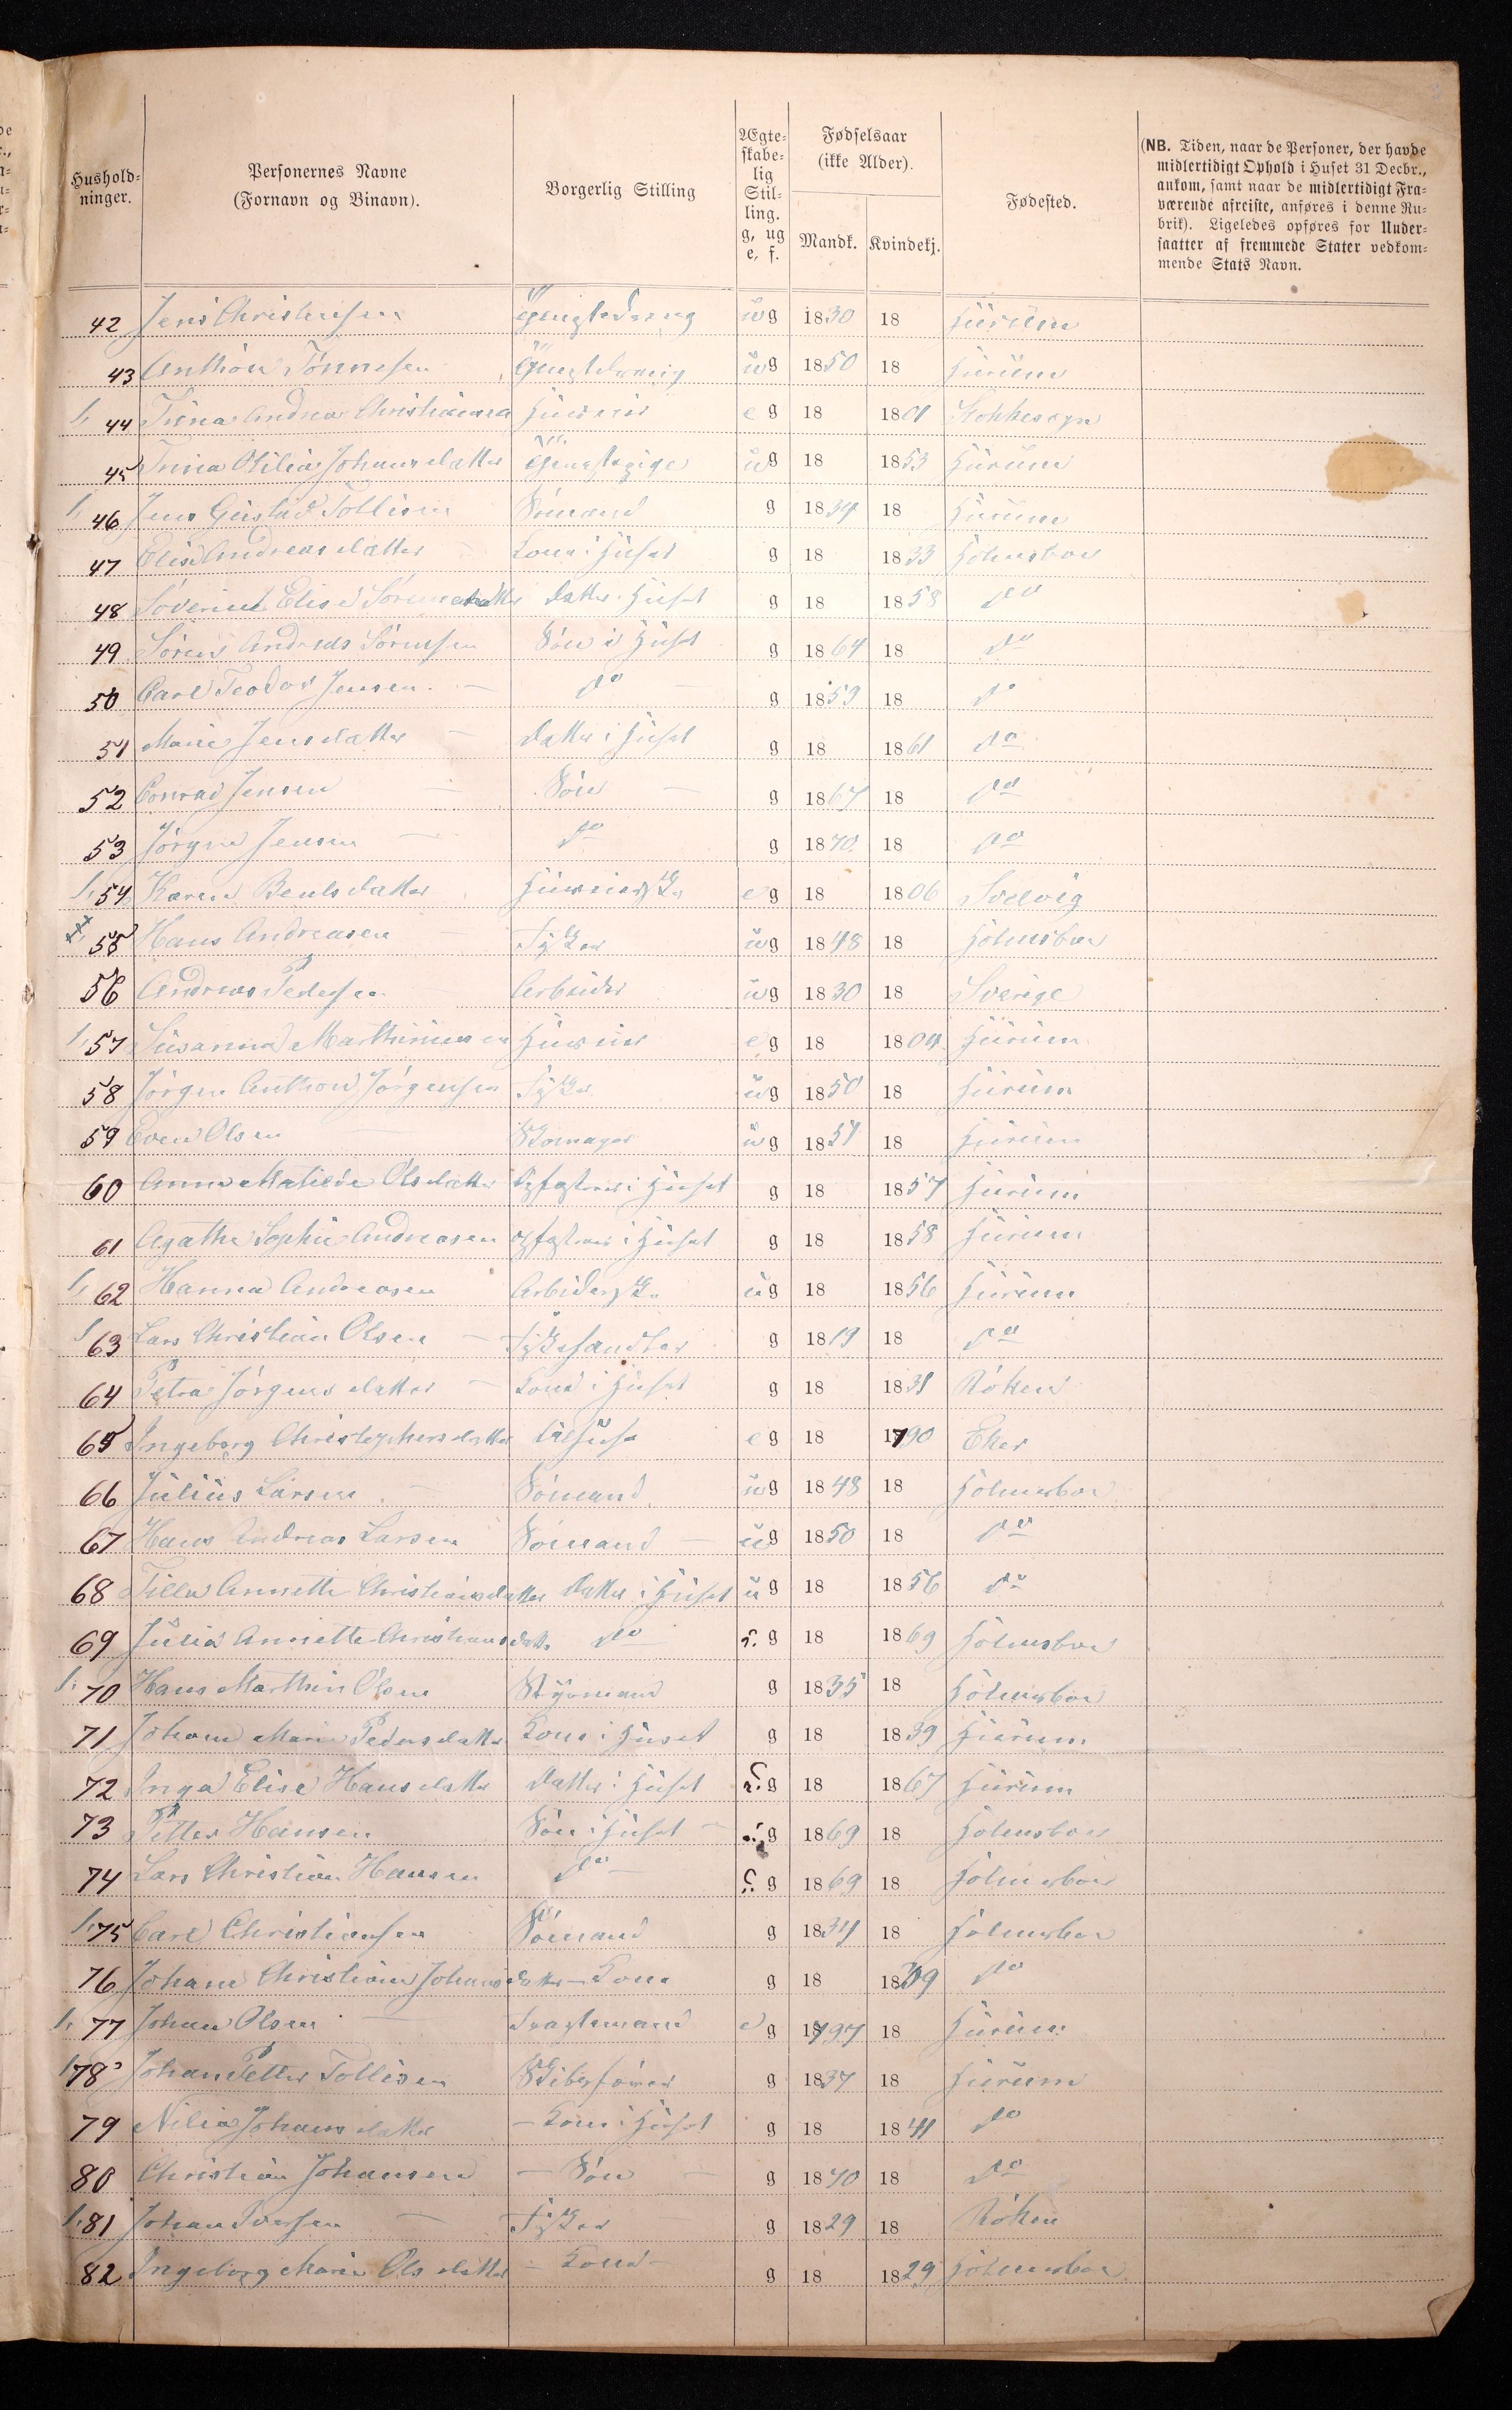 Hushold-
ninger.
Personernes Navne
(Fornavn og Binavn).
Borgerlig Stilling
Ægte-
skabe-
lig
Stil-
ling.
g, ug
e, f.
Fødselsaar
(ikke Alder).
Mandk.
Kvindekj.
Fødested.
(NB. Tiden, naar de Personer, der havde
midlertidigt Ophold i Huset 31 Decbr.,
ankom, samt naar de midlertidigt Fra-
værende afreiste, anføres i denne Ru-
brik). Ligeledes opføres for Under-
saatter af fremmede Stater vedkom-
mende Stats Navn.
42 Jens Christensen ug 1830 18 Hurum
43 Anthon Tønnesen ug 1850 18 Hurum
1, 44 Trina Andrea Christiansen eg 18 Stokkesogn
45 Trina Otilia Johansdatter ug 18 1853 Hurum
1, 46 Jens Gustav Tollisen Sömand g 1834 18 Hurum
47 Elise Andreasdatter Kone i Huset g 18 1833 Holmsboe
48 Elise Sörensdatter Datter i Huset g 18 1858 do
49 Sören Andreas Sörensen Sön i Huset g 1864 18 do
50 Carl Teodor Jensen do g 1859 18 do
51 Marie Jensdatter Datter i Huset g 18 1861 do
52 Conrad Jensen Sön g 1867 18 do
53 Jörgen Jensen do g 1870 18 do
1, 54 Karen Bentsdatter eg 18 1806 Svelvig
55 Hans Andreasen Fisker ug 1848 18 Holmsboe
56 Andreas Pedersen Arbeider ug 1830 18 Sverige
1, 57 Susanna Marthinusen eg 18 1804 Hurum
58 Jörgen Anthon Jörgensen Fisker ug 1850 18 Hurum
59 Even Olsen Skomager ug 1851 18 Hurum
60 Anne Matilde Olsdatter i Huset g 18 1857 Hurum
61 Agathe Sophie Andreasen i Huset g 18 1858 Hurum
1, 62 Hanna Andreasen Arbiderske ug 18 1856 Hurum
1 63 Lars Christian Olsen Fiskehandler g 1819 18 do
64 Petra Jörgensdatter Kone i Huset g 18 1831 Röken
65 Ingeborg Christophersdatter eg 18 1790 Eker
66 Julius Larsen Sömand ug 1848 18 Holmsboe
67 Hans Andreas Larsen Sömand ug 1850 18 do
68 Annette Christiansdatter Datter i Huset ug 18 1856 do
69 Julia Annette Christiansdatter do g 18 1869 Holmsboe
1. 70 Hans Marthin Olsen Styrmand g 1835 18 Holmsboe
71 Johanne Marie Pedersdatter Kone i Huset g 18 1839 Hurum
72 Inga Elise Hansdatter Datter i Huset g 18 1867 Hurum
73 Petter Hansen Sön i Huset g 1869 18 Holmsboe
74 Lars Christian Hansen do g 1869 18 Holmsboe
1, 75 Carl Christiansen Sömand g 1834 18 Holmsboe
76 Johane Christiane Johansdatter Kone g 18 1839 do
1. 77 Johan Olsen Fragtemand eg 1797 18 Hurum
1 78 Johan Petter Tollisen Skibsförer g 1837 18 Hurum
79 Nilia Johansdatter Kone i Huset g 18 1841 do
80 Christian Johansen Sön g 1870 18 do
1, 81 Johan Iversen Fisker g 1829 18 Röken
82 Ingeborg Marie Olsdatter Kone g 18 1829 Holmsboe